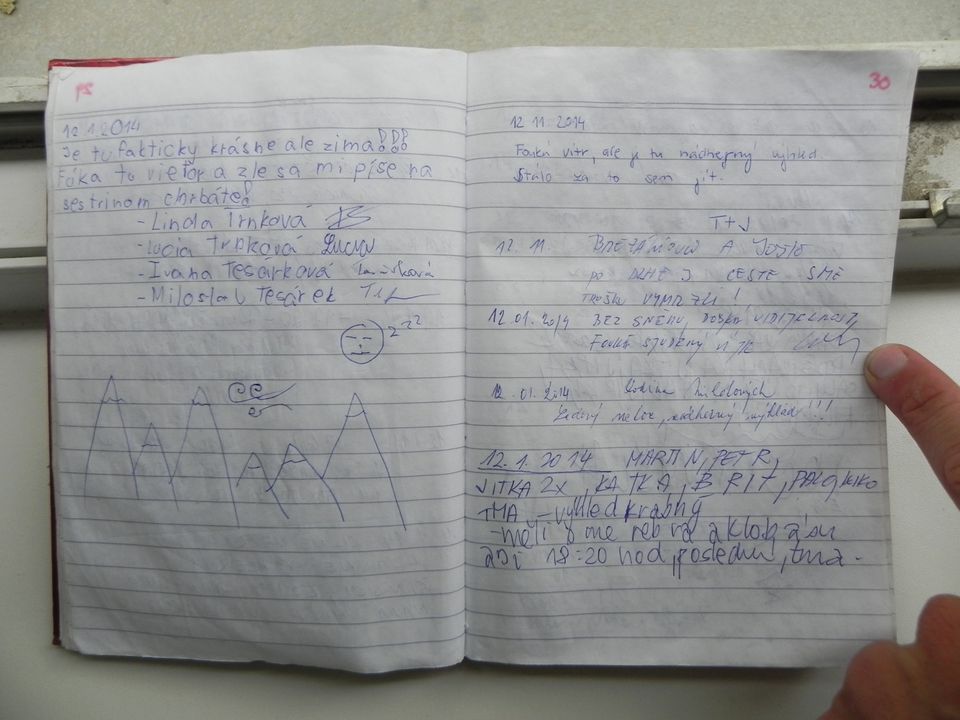 12.1.2014
Je tu fakticky krásne ale zima!!!
Fúka tu vietor a zle sa mi píše na
sestrinom chrbáte!
- Linda Trnková
- Lucia Trnková Lucia
- Ivana Tesárková
- Miloslav Tesárek
zzz
30
12 11. 2014
Fouká vítr, ale je tu nádherný výhled.
Stálo za to sem jít.
T+J
12. 11. A
PO DLHEJ CESTE SME
TROŠKU VYMRZLI!
12.01.2014 BEZ SNĚHU, DOBRÁ VIDITELNOST,
FOUKÁ STUDENÝ
12.01.2014 Rodina
Ledový , nádherný výhled!!!
12.1.2014 MARTIN, PETR,
JITKA 2x, KATKA, BRIT,
TMA - výhled krásný
- měli sme rebra a klobásu
18:20 hod, poslední, tma.